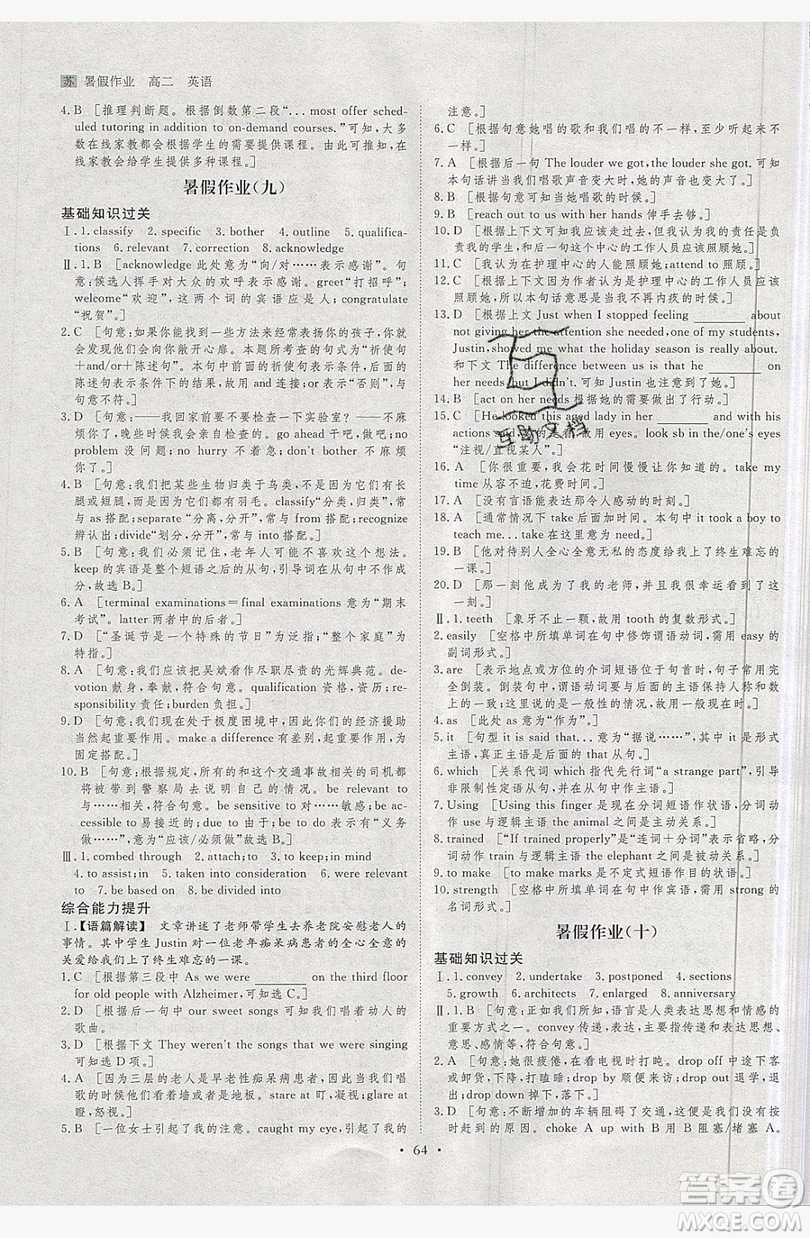 苏 暑假作业 高二 英语
4. B [推理判断题。根据倒数第二段“... most offer sched-
uled tutoring in addition to on-demand courses.”可知,大多
数在线家教都会根据学生的需要提供课程。所以说,在
线家教会给学生提供多种课程。]
暑假作业(九)
基础知识过关
Ⅰ. 1. classify 2. specific 3. bother 4. outline 5. qualifica-
tions 6. relevant 7. correction 8. acknowledge
Ⅱ. 1. B [acknowledge 此处意为“向/对……表示感谢”。句
意:候选人挥手对大众的欢呼表示感谢。greet“打招呼”,
welcome“欢迎”,这两个词的宾语应是人;congratulate
“祝贺”。]
2. C [句意:如果你尝试一些方法来经常表扬你的孩子,你
可能会让他们向你敞开心扉。本题所考查的句式为“祈使句
+and/or+陈述句”。本句中前面的祈使句表示条件,后面的
陈述句表示条件下的结果,故用 and;or 表示“否则”,与句
意不符。]
3. D [句意:——我回家前要不要检查一下实验室? ——不麻
烦你了,我晚上要亲自做。go ahead 干吧,做吧;no
problem 没问题;no hurry 别着急;don't bother 不麻烦。]
4. C [句意:我们把某些生物归类于鸟类,因为它们没有长
腿或短腿,但它们都有羽毛。classify“分类,归类”,常
与 as 搭配;separate “分离,分开”,常与 from 搭配,指从
中分离出;divide“划分,分开”,与 into 搭配。]
5. B [句意:我们必须记住,老年人可能不喜欢大声音乐。
keep 的宾语是整个短语之后的从句,根据后面从句中不缺
任何成分,故选 B。]
6. A [terminal examinations=final examinations 意为“期末
考试”。latter 两者中的后者。]
7. D [“圣诞节是一个特殊的节日”为泛指;“其他节日”为
特指。]
8. A [句意:我们应该把吴斌敬业尽职尽责的光辉典范。
devotion 献身,奉献,符合句意。qualification 资格,资历;re-
sponsibility 责任;burden 负担。]
9. D [句意:我们现在处于极度困境中,因此你们的经济援助
会有很大帮助。make a difference 有差别,有影响,为
固定搭配。]
10. B [句意:根据规定,所有涉及这个交通事故相关的司机都
将被带到警察局说出自己的情况。be relevant to 与……
相关,符合句意。be sensitive to 对……敏感;be ac-
cessible to 易接近的;due to 由于;be to do 有“义务
做……”,意为“应该/必须做”。]
Ⅲ. 1. combed through 2. attach; to 3. keep; in mind
4. to assist; in 5. taken into consideration 6. contribute
to 7. be based on 8. be divided into
综合能力提升
Ⅰ.【语篇解读】 文章讲述了老师带学生去养老院安慰老人的
事情。其中学生 Justin 对一位老年痴呆病患者的全心全意的
关爱给作者上了终生难忘的一课。
1. C [根据第三段中 As we were ______ on the third floor
for old people with Alzheimer,可知选 C。]
2. A [根据本句中的 our sweet songs 可知我们献给老人动人的
歌曲。]
3. D [根据下文 They weren't the songs we were singing
可知选 D 项。]
4. A [因为三层的老人是早老性痴呆病患者,所以当我们唱
歌的时候他们看着墙或者是地板。stare at 盯,凝视;glare at
瞪,怒视。]
5. B [一位女士引起了我的注意。caught my eye,引起了我的
注意。]
6. C [根据句意她唱的歌和我们唱的不一样,至少字词不一样。]
7. A [根据后一句 The louder we got, the louder she got.可知
本句话讲当我们唱歌声音变大时,她的声音也变大了。]
8. D [根据语境当她唱歌的时候。]
9. B [reach out to us with her hands 伸手去够。]
10. D [根据上下文可知我应该走过去,但我没有,因为我认
为这是一个护理中心,这个中心的工作人员应该照顾她。]
11. C [我认为在护理中心的人能照顾她;attend to 照顾。]
12. D [根据上下文因为作者认为是护理中心的工作人员应
当照顾她,所以意思是当我不再内疚的时候。]
13. D [根据上文 Just when I stopped feeling ______ about
not giving her the attention she needed, one of my students,
Justin, showed me what the holiday season is about.
和下文 The difference between us was that he ______ on
her needs but I didn't.可知 Justin 也注意到了她。]
14. B [根据后一句,根据她的需要做出了行动。]
15. C [He looked this aged lady in her ______ and with his
actions said 看的是老人的眼睛,故用 eyes。look sb in the/one's eyes
“注视/直视某人”。]
16. A [你很重要,我会花费我的时间,来告诉你。take time
从容不迫,花费时间。]
17. A [没有言语能表达那令人感动的时刻。]
18. A [通常情况下,意为 take 后面。本句中 it took a boy to
teach me... take 在此意思意为 need。]
19. B [他对待别人全心全意无私的态度给我上了终生难忘的
一课。]
20. D [那一刻他成了我的老师,而我是他的学生。]
Ⅱ. 1. teeth [象牙不止一颗,故用 tooth 的复数形式。]
2. easily [空格中所填单词在句中修饰谓语动词,故用 easy 的
副词形式。]
3. are [表示地点或方位的介词短语位于句首时,句子用完
全倒装。倒装句中,谓语动词与后面的主语保持人称和数上
的一致;这里说的是一般情况,故用一般现在时。]
4. as [此处 as 意为“作为”。]
5. it [句型 it is said that...,意为“据说……”,其中 it 是形式
主语,真正主语是后面的 that 从句。]
6. which [关系代词 which 指代先行词 “a strange part”,引导
非限制性定语从句,在从句中作主语。]
7. Using [Using this finger 是现在分词短语作状语,分词动
作 use 与逻辑主语 the animal 之间是主动关系。]
8. trained [“If trained properly”是“连词+分词”表示省略,分
词动作 train 与逻辑主语 the elephant 之间是被动关系。]
9. to make [to make 为不定式短语作目的状语。]
10. strength [空格中所填单词在句中作宾语,故用 strong 的
名词形式。]
暑假作业(十)
基础知识过关
Ⅰ. 1. convey 2. undertake 3. postponed 4. sections
5. growth 6. architects 7. enlarged 8. anniversary
Ⅱ. 1. B [句意:众所周知,语言是人类表达思想和情感的
重要方式。convey 传递,表达,符合句意。
2. A [句意:她很疲倦,在看电视时打盹。drop off 中途下车
或卸货,打盹,打瞌睡;drop by 顺便拜访;drop out 退学,退
出;drop down 放下。]
3. D [句意:不断增加的车辆阻碍了交通,这是我们上班迟
到的原因。choke A up with B 用 B 阻塞/堵塞 A。
64
互助文档
答案圈
MXQE.COM